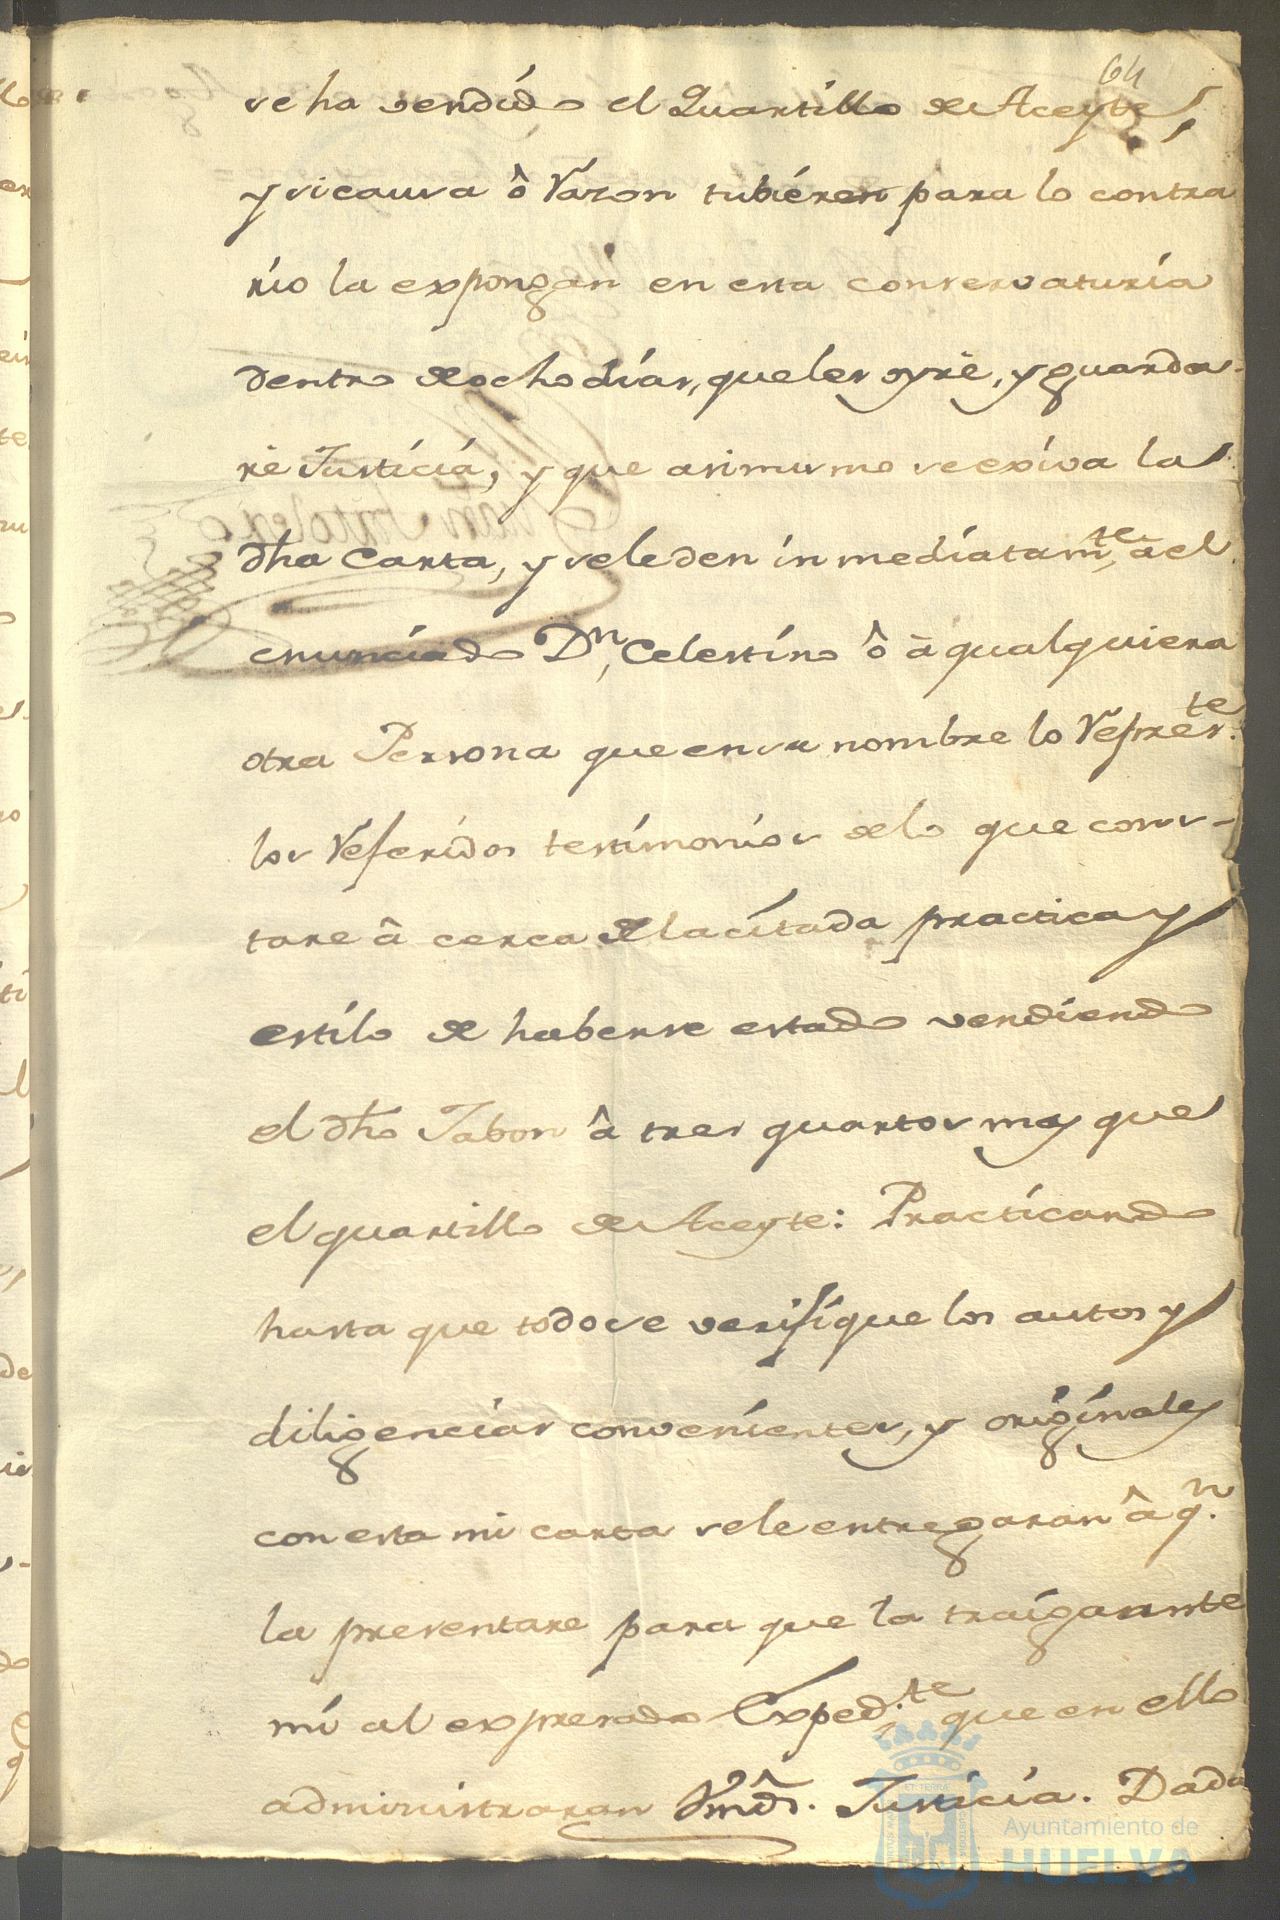 64
se ha vendido el Quartillo de Aceyte,
y si causa ô razon tubiéren para lo contra
rio la expongan en esta conservaturia
dentro de ocho días, que les oyré, y guarda-
ré Justicia, y que asimismo se exiva la
dha Carta, y se le den inmediatamte, à el
enunciado Dn, Celestino ô à qualquiera
otra Persona que en su nombre lo represte.
los referidos testimonios de lo que cons-
tare â cerca de la citada practica y
estilo de haberse estado vendiendo
el dho Jabon â tres quartos mas que
el quartillo de Aceyte: Practicando
hasta que todo se verifique los autos y
diligencias convenientes, y originales
con esta mi carta se le entregaran â qn.
la presentare para que la traiga ante
mí al expresado Expedte. que en ello
administraran Vmds. Justicia. Dada
Ayuntamiento de
HUELVA